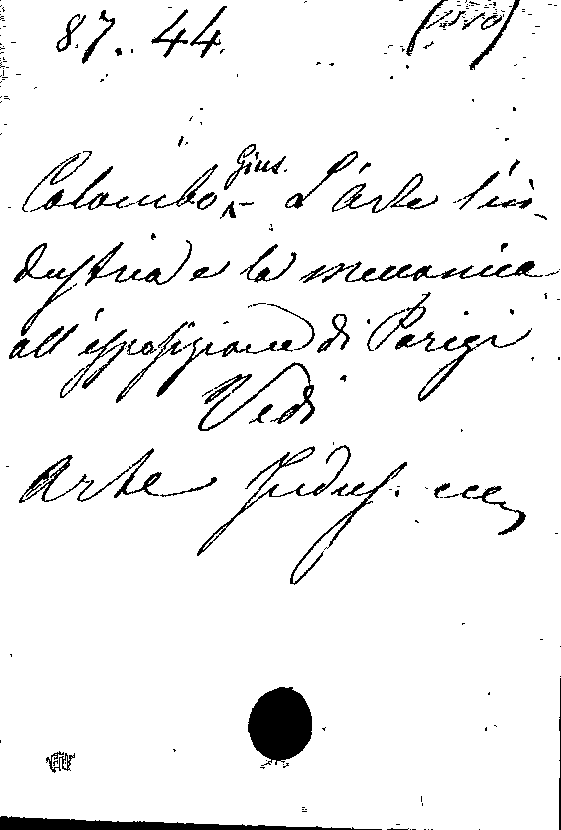 87. 44.
Colombo Gius. - L'arte l'in-
dustria e la meccanica
all'esposizione di Parigi
Vedi
Arte Indus. ecc,